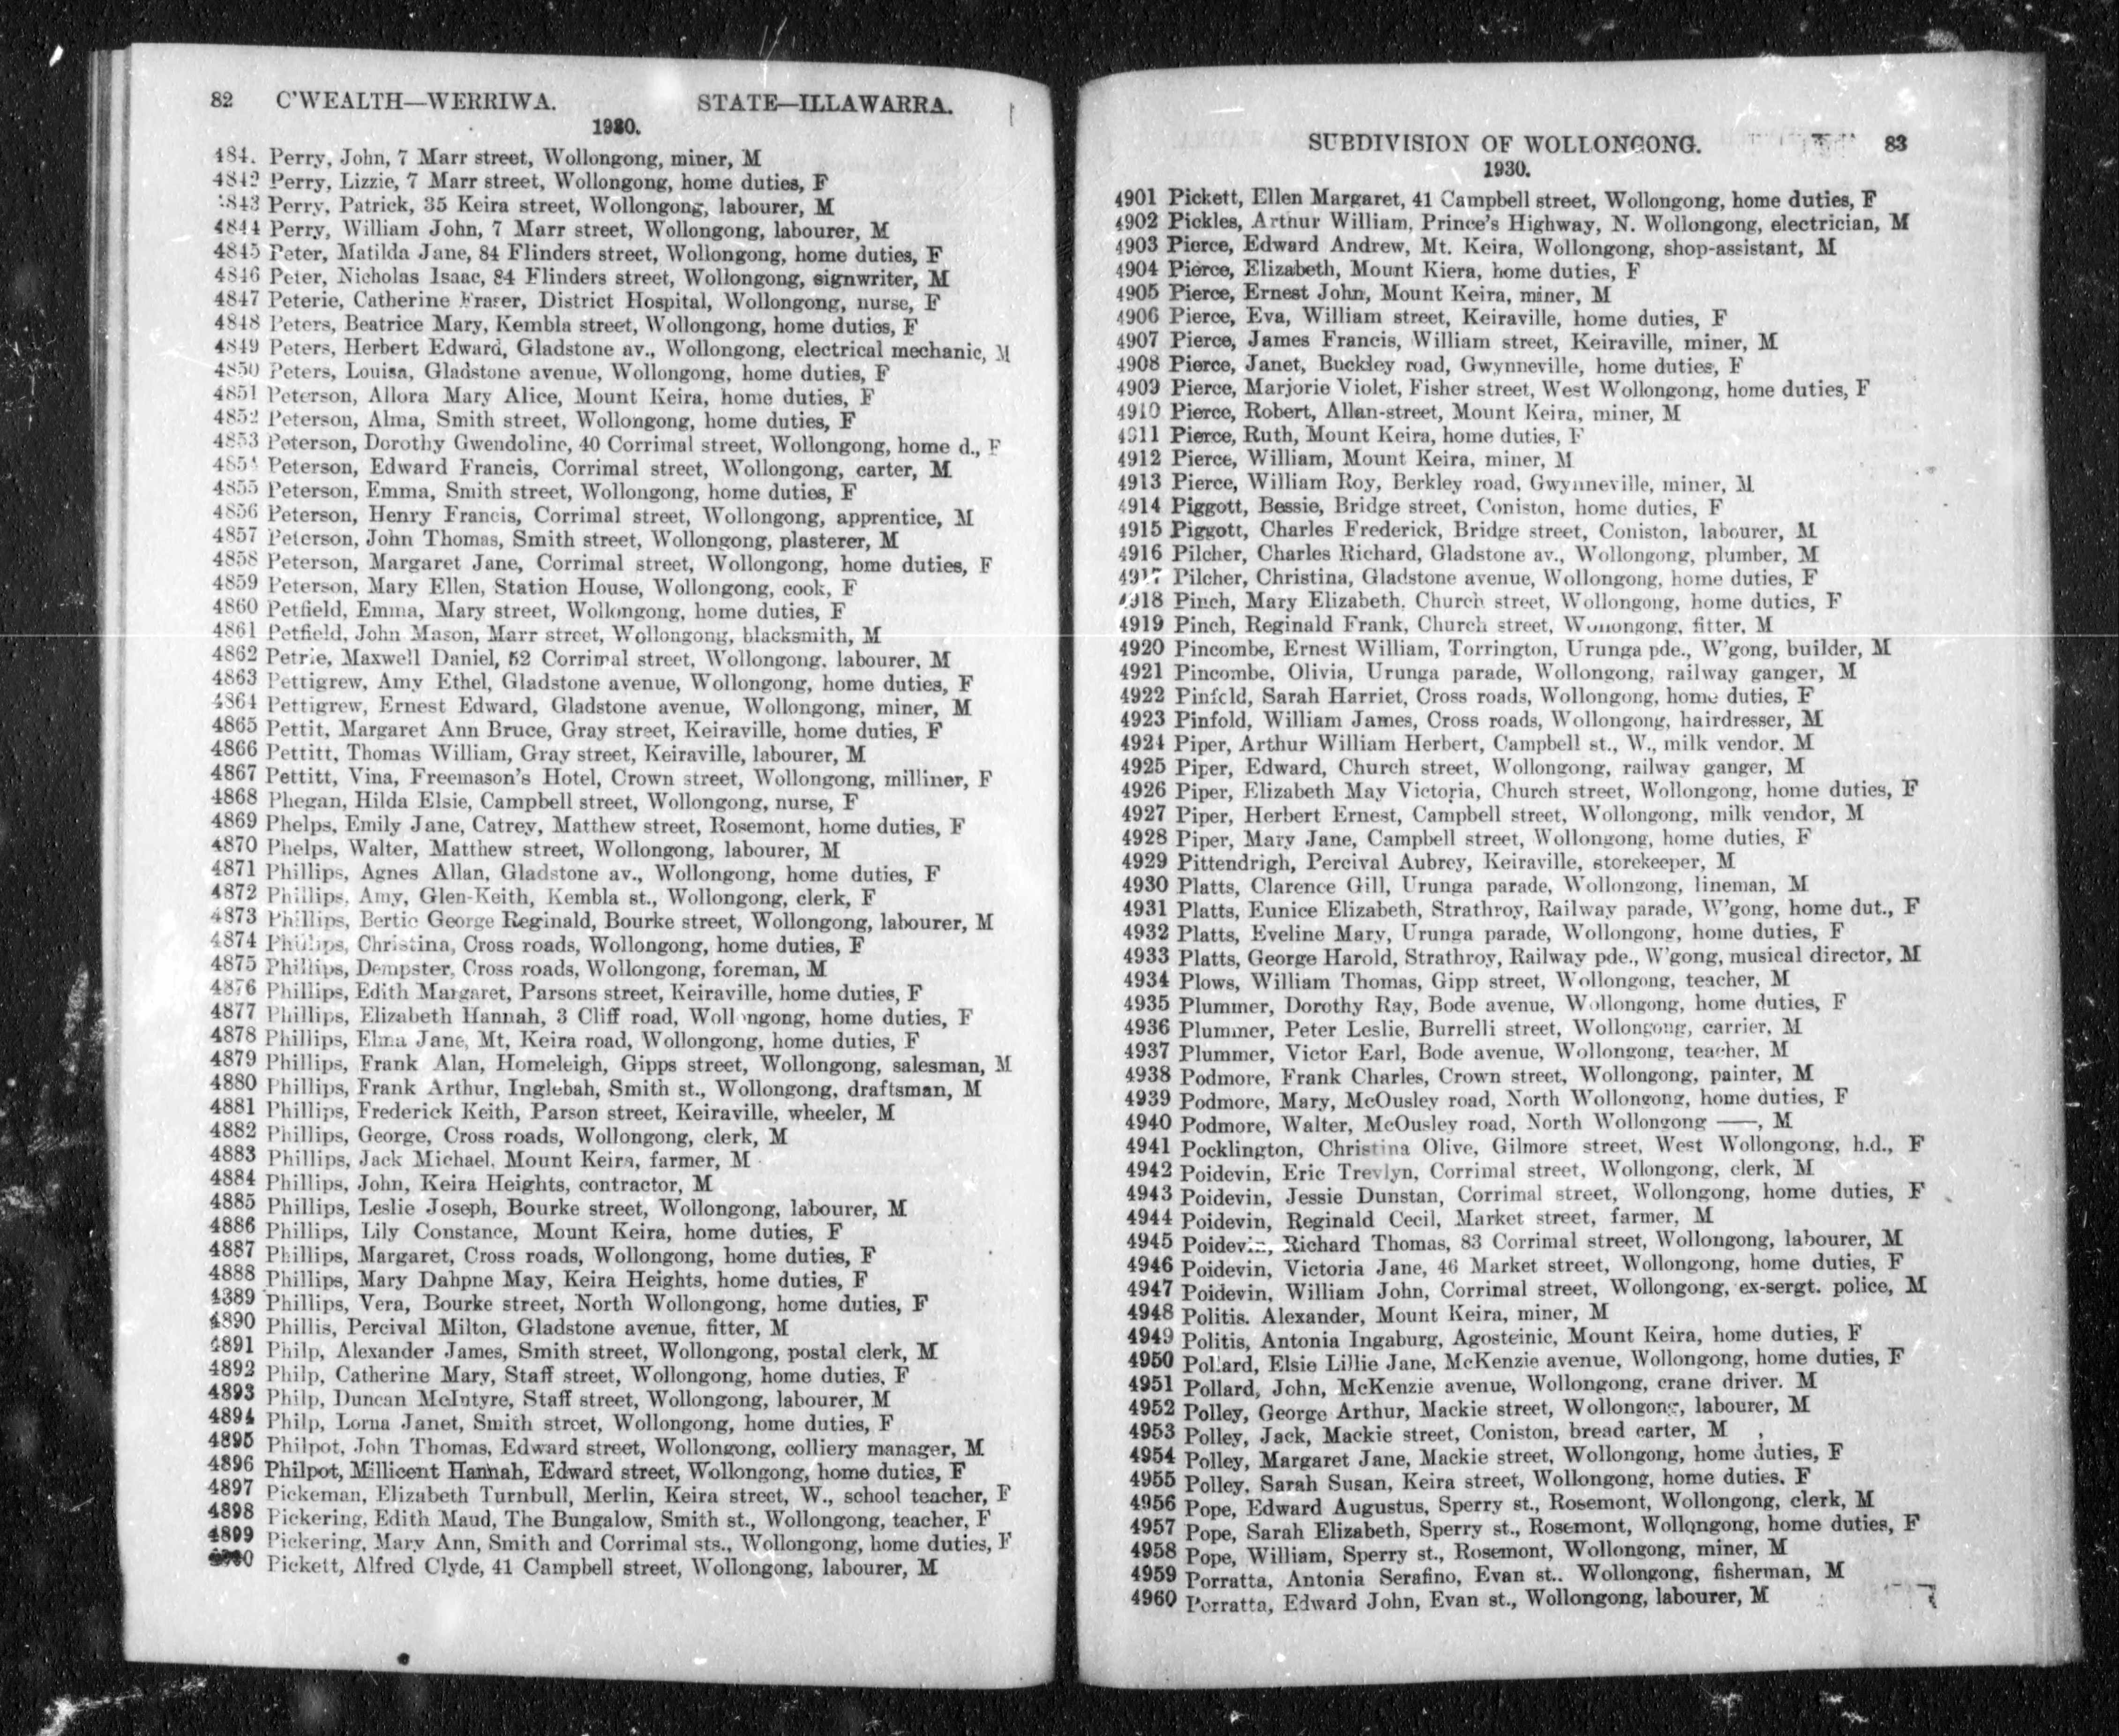 82 C'WEALTH—WERRIWA. STATE—ILLAWARRA.
1930.
484. Perry, John, 7 Marr street, Wollongong, miner, M
4842 Perry, Lizzie, 7 Marr street, Wollongong, home duties, F
4843 Perry, Patrick, 35 Keira street, Wollongong, labourer, M
4844 Perry, William John, 7 Marr street, Wollongong, labourer, M
4845 Peter, Matilda Jane, 84 Flinders street, Wollongong, home duties, F
4846 Peter, Nicholas Isaac, 84 Flinders street, Wollongong, signwriter, M
4847 Peterie, Catherine Fraser, District Hospital, Wollongong, nurse, F
4848 Peters, Beatrice Mary, Kembla street, Wollongong, home duties, F
4849 Peters, Herbert Edward, Gladstone av., Wollongong, electrical mechanic, M
4850 Peters, Louisa, Gladstone avenue, Wollongong, home duties, F
4851 Peterson, Allora Mary Alice, Mount Keira, home duties, F
4852 Peterson, Alma, Smith street, Wollongong, home duties, F
4853 Peterson, Dorothy Gwendoline, 40 Corrimal street, Wollongong, home d., F
4854 Peterson, Edward Francis, Corrimal street, Wollongong, carter, M
4855 Peterson, Emma, Smith street, Wollongong, home duties, F
4856 Peterson, Henry Francis, Corrimal street, Wollongong, apprentice, M
4857 Peterson, John Thomas, Smith street, Wollongong, plasterer, M
4858 Peterson, Margaret Jane, Corrimal street, Wollongong, home duties, F
4859 Peterson, Mary Ellen, Station House, Wollongong, cook, F
4860 Petfield, Emma, Mary street, Wollongong, home duties, F
4861 Petfield, John Mason, Marr street, Wollongong, blacksmith, M
4862 Petrie, Maxwell Daniel, 52 Corrimal street, Wollongong, labourer, M
4863 Pettigrew, Amy Ethel, Gladstone avenue, Wollongong, home duties, F
4864 Pettigrew, Ernest Edward, Gladstone avenue, Wollongong, miner, M
4865 Pettit, Margaret Ann Bruce, Gray street, Keiraville, home duties, F
4866 Pettitt, Thomas William, Gray street, Keiraville, labourer, M
4867 Pettitt, Vina, Freemason's Hotel, Crown street, Wollongong, milliner, F
4868 Phegan, Hilda Elsie, Campbell street, Wollongong, nurse, F
4869 Phelps, Emily Jane, Catrey, Matthew street, Rosemont, home duties, F
4870 Phelps, Walter, Matthew street, Wollongong, labourer, M
4871 Phillips, Agnes Allan, Gladstone av., Wollongong, home duties, F
4872 Phillips, Amy, Glen-Keith, Kembla st., Wollongong, clerk, F
4873 Phillips, Bertie George Reginald, Bourke street, Wollongong, labourer, M
4874 Phillips, Christina, Cross roads, Wollongong, home duties, F
4875 Phillips, Dempster, Cross roads, Wollongong, foreman, M
4876 Phillips, Edith Margaret, Parsons street, Keiraville, home duties, F
4877 Phillips, Elizabeth Hannah, 3 Cliff road, Wollongong, home duties, F
4878 Phillips, Elma Jane, Mt, Keira road, Wollongong, home duties, F
4879 Phillips, Frank Alan, Homeleigh, Gipps street, Wollongong, salesman, M
4880 Phillips, Frank Arthur, Inglebah, Smith st., Wollongong, draftsman, M
4881 Phillips, Frederick Keith, Parson street, Keiraville, wheeler, M
4882 Phillips, George, Cross roads, Wollongong, clerk, M
4883 Phillips, Jack Michael, Mount Keira, farmer, M
4884 Phillips, John, Keira Heights, contractor, M
4885 Phillips, Leslie Joseph, Bourke street, Wollongong, labourer, M
4886 Phillips, Lily Constance, Mount Keira, home duties, F
4887 Phillips, Margaret, Cross roads, Wollongong, home duties, F
4888 Phillips, Mary Dahpne May, Keira Heights, home duties, F
4389 Phillips, Vera, Bourke street, North Wollongong, home duties, F
4890 Phillis, Percival Milton, Gladstone avenue, fitter, M
4891 Philp, Alexander James, Smith street, Wollongong, postal clerk, M
4892 Philp, Catherine Mary, Staff street, Wollongong, home duties, F
4893 Philp, Duncan McIntyre, Staff street, Wollongong, labourer, M
4894 Philp, Lorna Janet, Smith street, Wollongong, home duties, F
4895 Philpot, John Thomas, Edward street, Wollongong, colliery manager, M
4896 Philpot, Millicent Hannah, Edward street, Wollongong, home duties, F
4897 Pickeman, Elizabeth Turnbull, Merlin, Keira street, W., school teacher, F
4898 Pickering, Edith Maud, The Bungalow, Smith st., Wollongong, teacher, F
4899 Pickering, Mary Ann, Smith and Corrimal sts., Wollongong, home duties, F
4900 Pickett, Alfred Clyde, 41 Campbell street, Wollongong, labourer, M
SUBDIVISION OF WOLLONGONG. 83
1930.
4901 Pickett, Ellen Margaret, 41 Campbell street, Wollongong, home duties, F
4902 Pickles, Arthur William, Prince's Highway, N. Wollongong, electrician, M
4903 Pierce, Edward Andrew, Mt. Keira, Wollongong, shop-assistant, M
4904 Pierce, Elizabeth, Mount Kiera, home duties, F
4905 Pierce, Ernest John, Mount Keira, miner, M
4906 Pierce, Eva, William street, Keiraville, home duties, F
4907 Pierce, James Francis, William street, Keiraville, miner, M
4908 Pierce, Janet, Buckley road, Gwynneville, home duties, F
4909 Pierce, Marjorie Violet, Fisher street, West Wollongong, home duties, F
4910 Pierce, Robert, Allan-street, Mount Keira, miner, M
4911 Pierce, Ruth, Mount Keira, home duties, F
4912 Pierce, William, Mount Keira, miner, M
4913 Pierce, William Roy, Berkley road, Gwynneville, miner, M
4914 Piggott, Bessie, Bridge street, Coniston, home duties, F
4915 Piggott, Charles Frederick, Bridge street, Coniston, labourer, M
4916 Pilcher, Charles Richard, Gladstone av., Wollongong, plumber, M
4917 Pilcher, Christina, Gladstone avenue, Wollongong, home duties, F
4918 Pinch, Mary Elizabeth, Church street, Wollongong, home duties, F
4919 Pinch, Reginald Frank, Church street, Wollongong, fitter, M
4920 Pincombe, Ernest William, Torrington, Urunga pde., W'gong, builder, M
4921 Pincombe, Olivia, Urunga parade, Wollongong, railway ganger, M
4922 Pinfold, Sarah Harriet, Cross roads, Wollongong, home duties, F
4923 Pinfold, William James, Cross roads, Wollongong, hairdresser, M
4924 Piper, Arthur William Herbert, Campbell st., W., milk vendor, M
4925 Piper, Edward, Church street, Wollongong, railway ganger, M
4926 Piper, Elizabeth May Victoria, Church street, Wollongong, home duties, F
4927 Piper, Herbert Ernest, Campbell street, Wollongong, milk vendor, M
4928 Piper, Mary Jane, Campbell street, Wollongong, home duties, F
4929 Pittendrigh, Percival Aubrey, Keiraville, storekeeper, M
4930 Platts, Clarence Gill, Urunga parade, Wollongong, lineman, M
4931 Platts, Eunice Elizabeth, Strathroy, Railway parade, W'gong, home dut., F
4932 Platts, Eveline Mary, Urunga parade, Wollongong, home duties, F
4933 Platts, George Harold, Strathroy, Railway pde., W'gong, musical director, M
4934 Plows, William Thomas, Gipp street, Wollongong, teacher, M
4935 Plummer, Dorothy Ray, Bode avenue, Wollongong, home duties, F
4936 Plummer, Peter Leslie, Burrelli street, Wollongong, carrier, M
4937 Plummer, Victor Earl, Bode avenue, Wollongong, teacher, M
4938 Podmore, Frank Charles, Crown street, Wollongong, painter, M
4939 Podmore, Mary, McOusley road, North Wollongong, home duties, F
4940 Podmore, Walter, McOusley road, North Wollongong ——, M
4941 Pocklington, Christina Olive, Gilmore street, West Wollongong, h.d., F
4942 Poidevin, Eric Trevlyn, Corrimal street, Wollongong, clerk, M
4943 Poidevin, Jessie Dunstan, Corrimal street, Wollongong, home duties, F
4944 Poidevin, Reginald Cecil, Market street, farmer, M
4945 Poidevin, Richard Thomas, 83 Corrimal street, Wollongong, labourer, M
4946 Poidevin, Victoria Jane, 46 Market street, Wollongong, home duties, F
4947 Poidevin, William John, Corrimal street, Wollongong, ex-sergt. police, M
4948 Politis. Alexander, Mount Keira, miner, M
4949 Politis, Antonia Ingaburg, Agosteinic, Mount Keira, home duties, F
4950 Pollard, Elsie Lillie Jane, McKenzie avenue, Wollongong, home duties, F
4951 Pollard, John, McKenzie avenue, Wollongong, crane driver. M
4952 Polley, George Arthur, Mackie street, Wollongong, labourer, M
4953 Polley, Jack, Mackie street, Coniston, bread carter, M
4954 Polley, Margaret Jane, Mackie street, Wollongong, home duties, F
4955 Polley, Sarah Susan, Keira street, Wollongong, home duties. F
4956 Pope, Edward Augustus, Sperry st., Rosemont, Wollongong, clerk, M
4957 Pope, Sarah Elizabeth, Sperry st., Rosemont, Wollongong, home duties, F
4958 Pope, William, Sperry st., Rosemont, Wollongong, miner, M
4959 Porratta, Antonia Serafino, Evan st.. Wollongong, fisherman, M
4960 Porratta, Edward John, Evan st., Wollongong, labourer, M